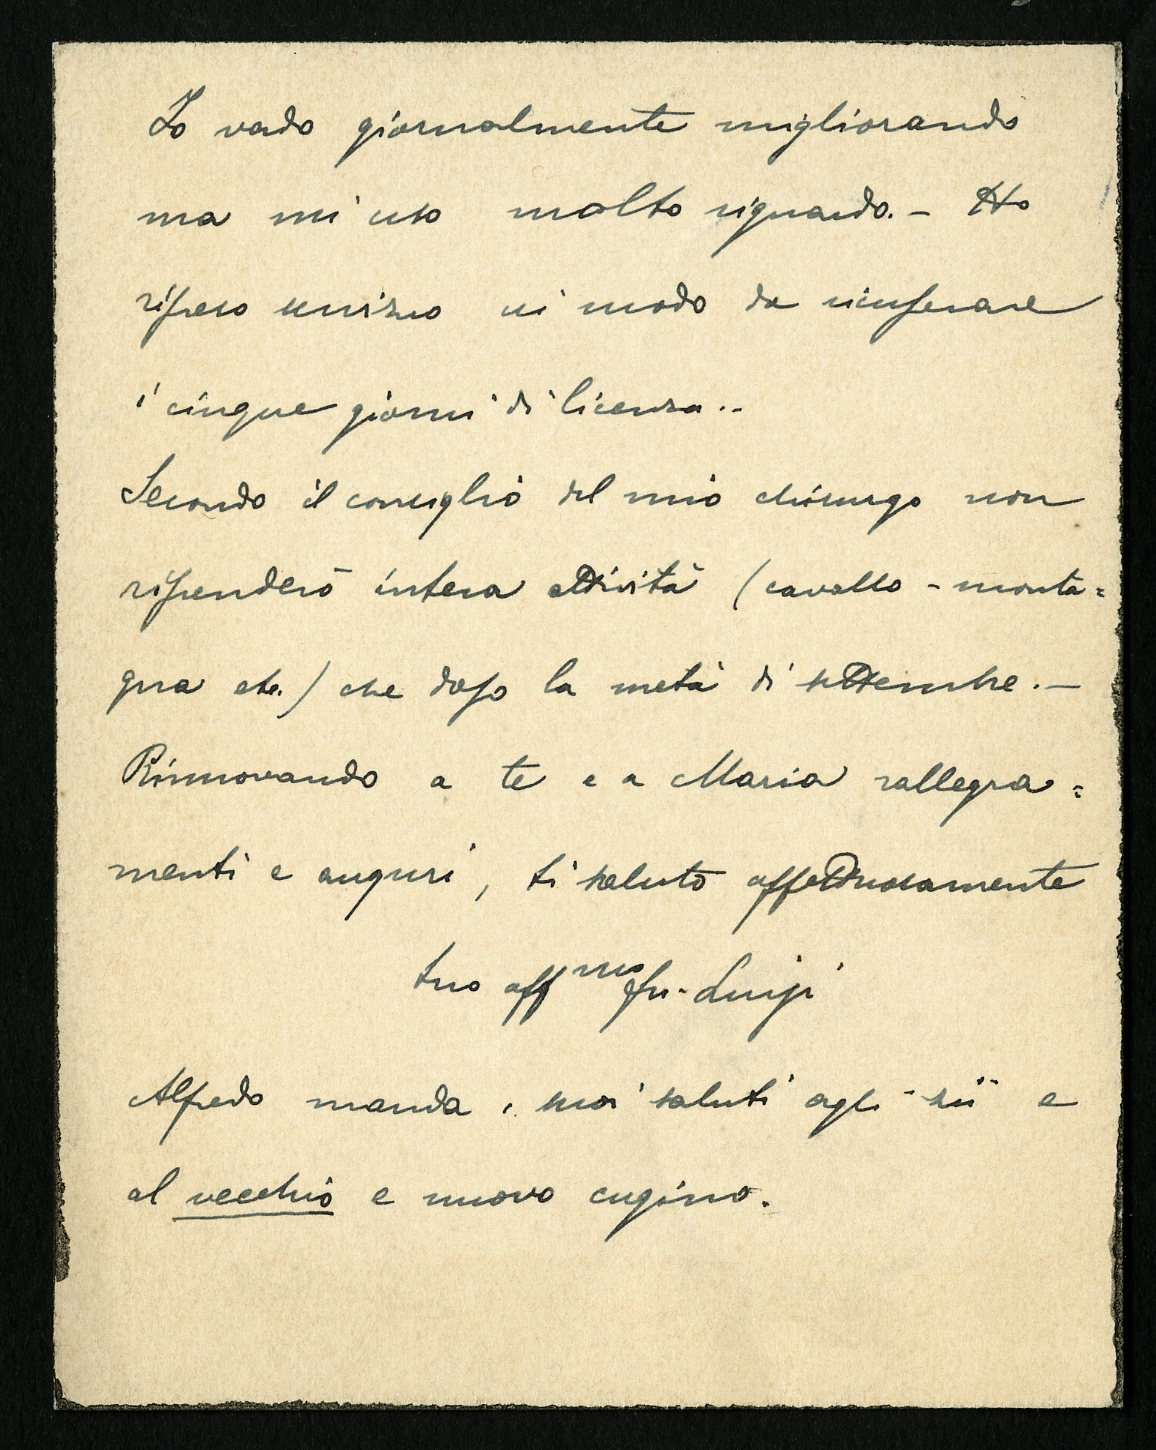 Io vado giornalmente migliorando
ma mi uso molto riguardo. - Ho
ripreso servizio in modo da ricuperare
i cinque giorni di licenza..
Secondo il consiglio del mio chirurgo non
riprenderò intera attività (cavallo - monta=
gna etc.) che dopo la metà di settembre. -
Rinnovando a te e a Maria rallegra=
menti e auguri, ti saluto affettuosamente
tuo aff mo Luigi
Alfredo manda i suoi saluti agli zii e
al vecchio e nuovo cugino.